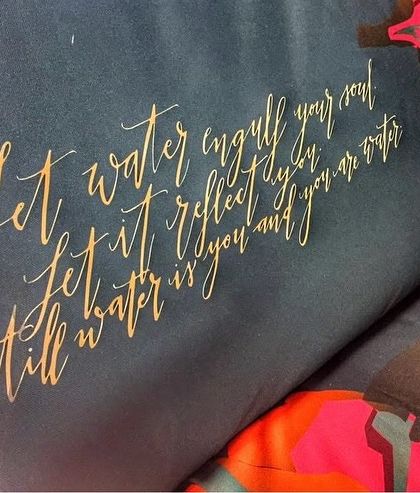 Let water engulf your soul.
Let it reflect you.
till water is you and you are water